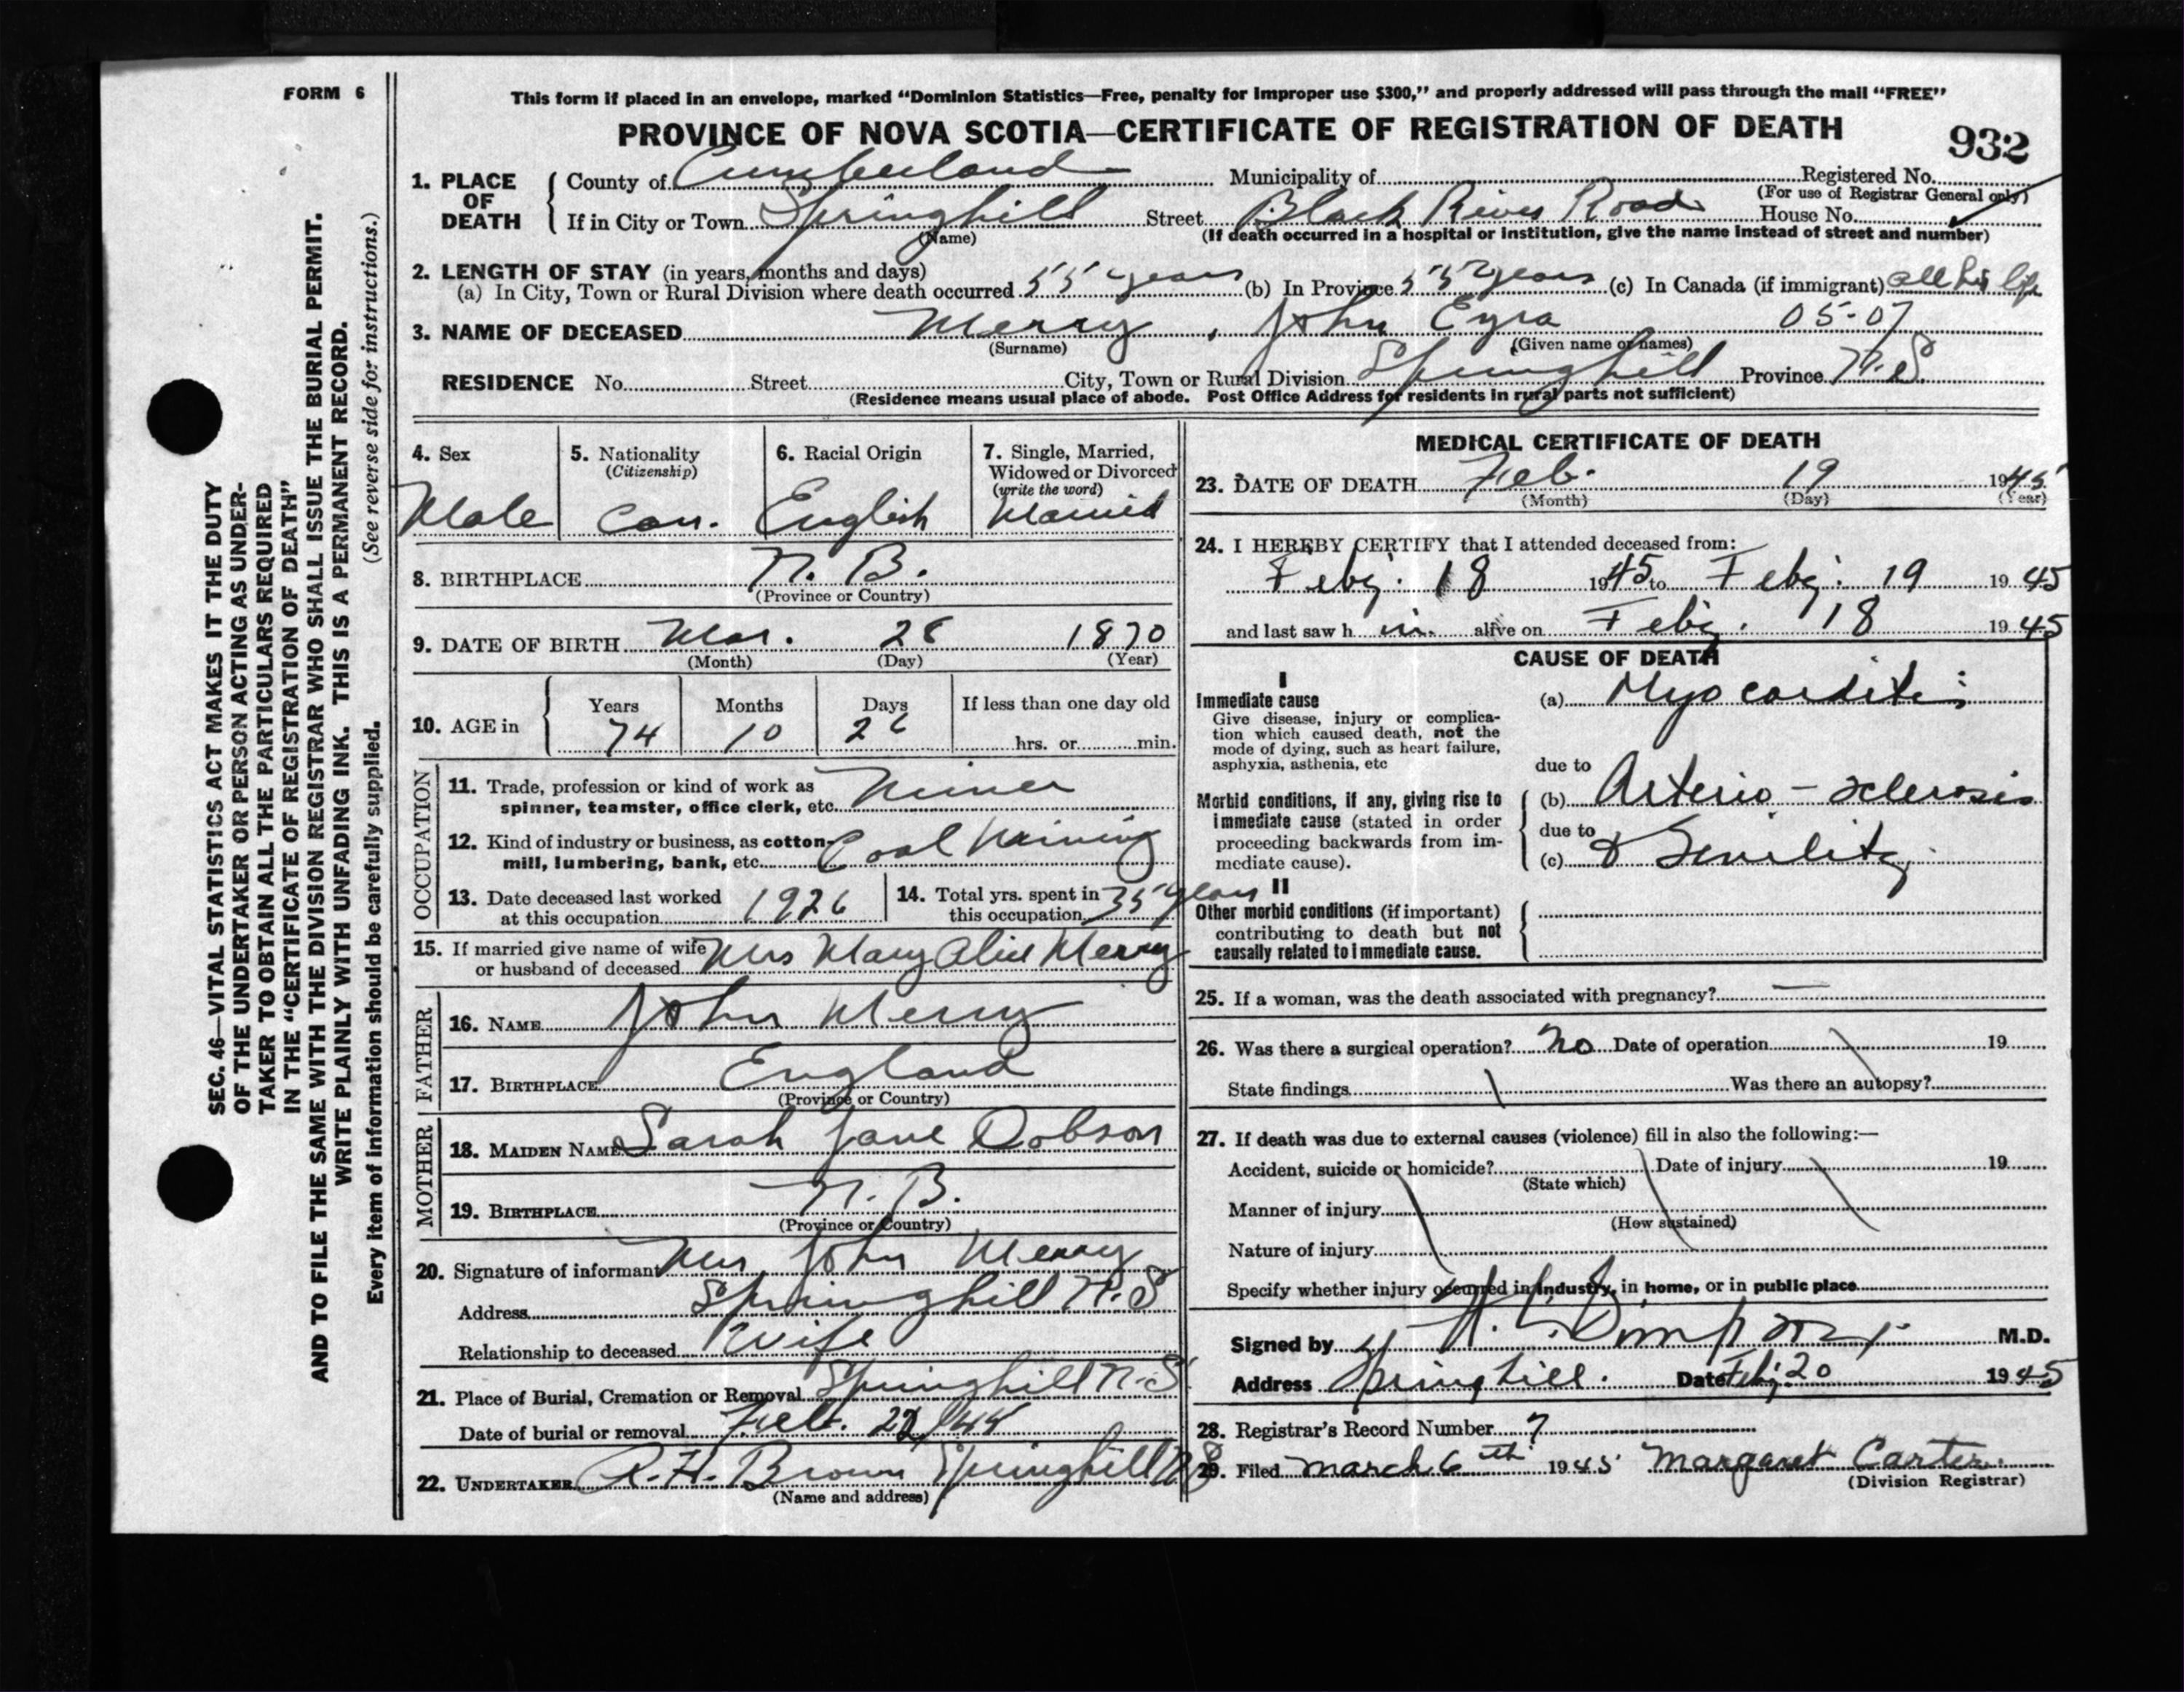 FORM 6
This form if placed in an envelope, marked “Dominion Statistics—Free, penalty for improper use $300,” and properly addressed will pass through the mail “FREE”
PROVINCE OF NOVA SCOTIA—CERTIFICATE OF REGISTRATION OF DEATH
932
1. PLACE OF DEATH
County of Cumberland Municipality of Registered No.
(For use of Registrar General only)
If in City or Town Springhill Street Black River Road House No.
(Name) (If death occurred in a hospital or institution, give the name instead of street and number)
2. LENGTH OF STAY (in years, months and days)
(a) In City, Town or Rural Division where death occurred 55 years (b) In Province 55 years (c) In Canada (if immigrant) all his life
3. NAME OF DECEASED Merry, John Ezra 05-07
(Surname) (Given name or names)
RESIDENCE No. Street City, Town or Rural Division Springhill Province N.S.
(Residence means usual place of abode. Post Office Address for residents in rural parts not sufficient)
4. Sex
Male
5. Nationality
(Citizenship)
Can.
6. Racial Origin
English
7. Single, Married,
Widowed or Divorced
(write the word)
Married
8. BIRTHPLACE N. B.
(Province or Country)
9. DATE OF BIRTH Mar. 28 1870
(Month) (Day) (Year)
10. AGE in
Years Months Days If less than one day old
74 10 26 hrs. or min.
OCCUPATION
11. Trade, profession or kind of work as
spinner, teamster, office clerk, etc. Miner
12. Kind of industry or business, as cotton-
mill, lumbering, bank, etc. Coal Mining
13. Date deceased last worked
at this occupation 1926
14. Total yrs. spent in
this occupation 35 years
15. If married give name of wife
or husband of deceased Mrs Mary Alice Merry
FATHER
16. NAME John Merry
17. BIRTHPLACE England
(Province or Country)
MOTHER
18. MAIDEN NAME Sarah Jane Dobson
19. BIRTHPLACE N. B.
(Province or Country)
20. Signature of informant Mrs. John Merry
Address Springhill N.S
Relationship to deceased Wife
21. Place of Burial, Cremation or Removal Springhill N.S.
Date of burial or removal Feb. 22/45
22. UNDERTAKER R. H. Brown Springhill N.S
(Name and address)
MEDICAL CERTIFICATE OF DEATH
23. DATE OF DEATH Feb. 19 1945
(Month) (Day) (Year)
24. I HEREBY CERTIFY that I attended deceased from:
Feby. 18 1945 to Feby. 19 1945
and last saw h im alive on Feby. 18 1945
CAUSE OF DEATH
I
Immediate cause
Give disease, injury or complica-
tion which caused death, not the
mode of dying, such as heart failure,
asphyxia, asthenia, etc
(a) Myocarditis
due to
Morbid conditions, if any, giving rise to
immediate cause (stated in order
proceeding backwards from im-
mediate cause).
(b) Arterio-sclerosis
due to
(c) & Senility
II
Other morbid conditions (if important)
contributing to death but not
causally related to immediate cause.
25. If a woman, was the death associated with pregnancy? —
26. Was there a surgical operation? No Date of operation 19
State findings Was there an autopsy?
27. If death was due to external causes (violence) fill in also the following:—
Accident, suicide or homicide? Date of injury 19
(State which)
Manner of injury
(How sustained)
Nature of injury
Specify whether injury occurred in industry, in home, or in public place
Signed by M.D.
Address Springhill. Date Feby. 20 1945
28. Registrar's Record Number 7
29. Filed March 6th 1945 Margaret Carter
(Division Registrar)
SEC. 46—VITAL STATISTICS ACT MAKES IT THE DUTY
OF THE UNDERTAKER OR PERSON ACTING AS UNDER-
TAKER TO OBTAIN ALL THE PARTICULARS REQUIRED
IN THE “CERTIFICATE OF REGISTRATION OF DEATH”
AND TO FILE THE SAME WITH THE DIVISION REGISTRAR WHO SHALL ISSUE THE BURIAL PERMIT.
WRITE PLAINLY WITH UNFADING INK. THIS IS A PERMANENT RECORD.
Every item of information should be carefully supplied. (See reverse side for instructions.)